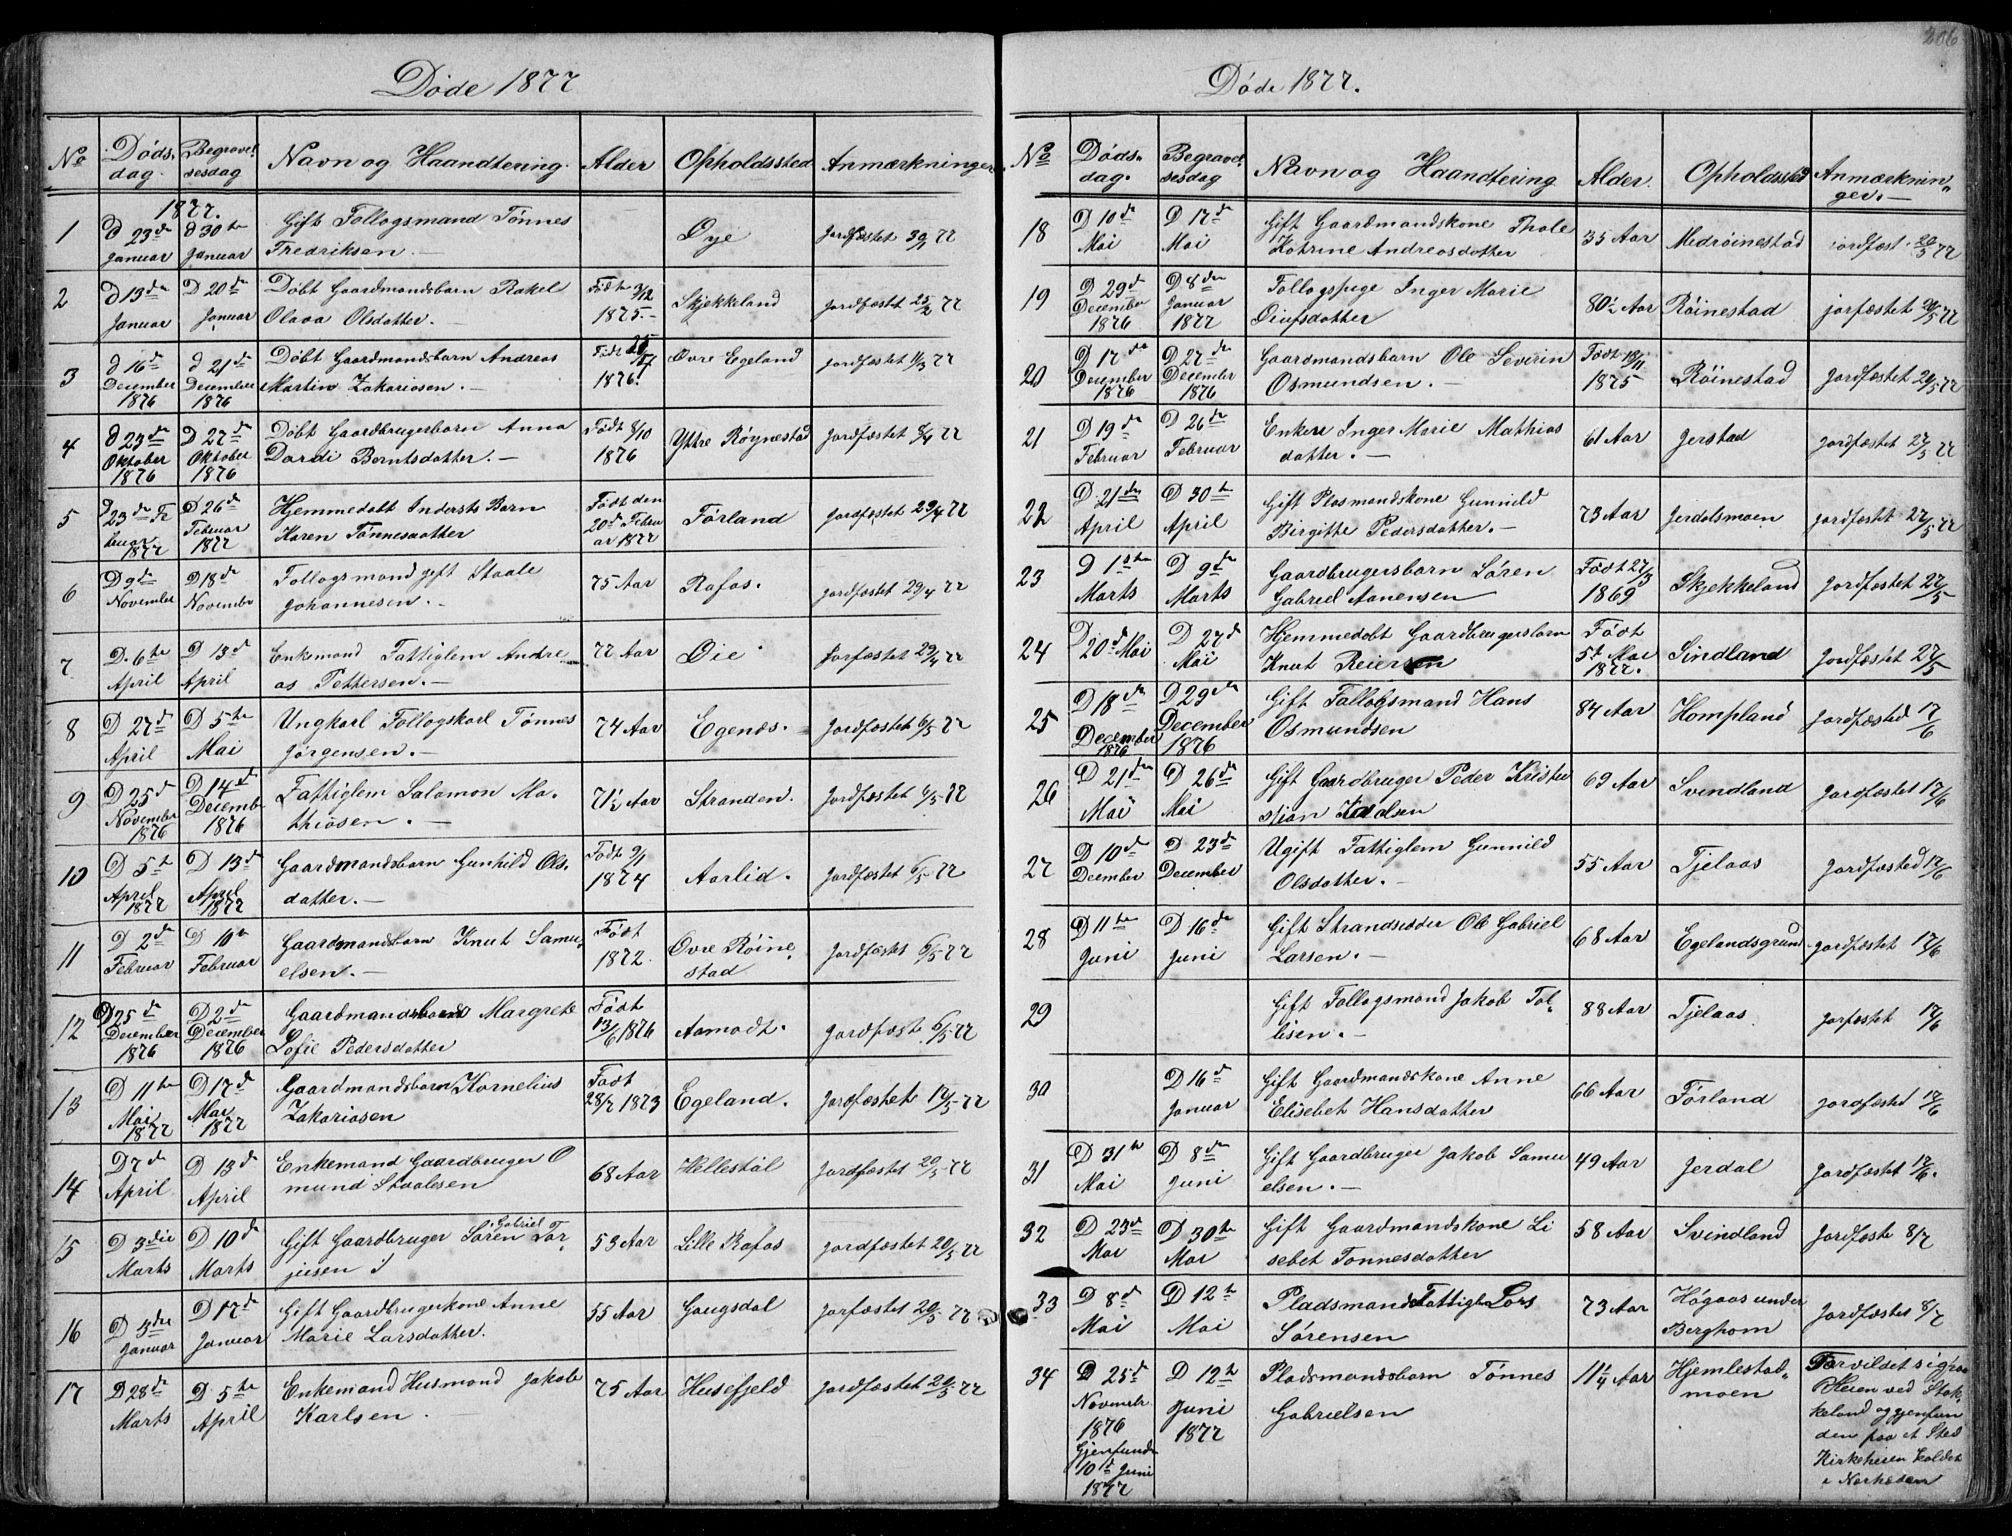 206
Døde 1877
No Dødsdag. Begravelsesdag Navn og Haandtering. Alder Opholdssted Anmærkninger
1877.
1 d 23de Januar d 30te Januar Gift Follogsmand Tønnes Øye Jordfæstet 77
Fredriksen. —
2 d 13de Januar D 20de Januar Døbt Gaardmandsbarn Rakel Født 3/12 1875. — Skjekkeland Jordfæstet 25/2 77
Olava Olsdatter. —
3 d 16de December 1876 d 21de December 1876 Døbt Gaardmandsbarn Andreas Født 1876. Øvre Egeland Jordfæstet 11/3 77
Martin Zakariasen. —
4 d 23de Oktober 1876 D 27de Oktober 1876 Døbt Gaardbrugerbarn Anna Født 8/10 1876 Yttre Røynestad Jordfæstet 8/4 77
Dardi Berntsdatter. —
5 23de Februar 1877 D 26de Februar 1877 Hjemmedøbt Inderst Barn Født den 20de Februar 1877 Førland Jordfæstet 29/4 77
Karen Tønnesdatter
6 D 9de November D 18de Novembr Follogsmand gift Staale 75 Aar Rafos. Jordfæstet 29/4 77
Johannesen. —
7 D. 6te April D 13de April Enkemand Fattiglem Andre 77 Aar Øie Jorfæstet 29/4 77
as Pettersen. —
8 D 27de April D 5te Mai Ungkarl Follogskarl Tønnes 74 Aar Egenæs. Jordfæstet 6/5 77
Jørgensen. —
9 D 25de November 1876 D 14de Decemb 1876 Fattiglem Salamon Ma- 71½ Aar Stranden. Jordfæstet 6/5 77
thiasen. —
10 D 5te April 1877 D 13de April 1877 Gaardmandsbarn Gunhild Ols- Født 9/1 1874 Aarlid. Jordfæstet 6/5 77
datter. —
11 D 2de Februar D 10de Februar Gaardmandsbarn Knut Samu- Født 1872. Øvre Røinestad Jordfæstet 6/5 77
elsen. —
12 D 25de December 1876 D 2de December 1876 Gaardmandsbarn Margrete Født 13/6 1876 Aamodt. Jordfæste 6/5 77
Sofie Pedersdatter
13 D 11te Mai 1877 D 17de Mai 1877 Gaardmandsbarn Kornelius Født 28/7 1873 Egeland. Jordfæstet 77
Zakariasen
14 D 7de April D 13de April Enkemand Gaardbruger O 68 Aar Hellestøl Jordfæstet 20/5 77
mund Staalesen
15 D 3die Marts D 10de Marts Gift Gaardbruger Søren Gabriel Tor- 53 Aar Lille Rafos Jordfæstet 20/5 77
jusen
16 D 3die Januar D 17de Januar Gift Gaardbrugerkone Anne 55 Aar Gaugsdal Jorfæstet 20/5 77
Marie Larsdatter.
17 D 28de Marts D 5te April Enkemand Husmand Jakob 75 Aar Husefjeld Jordfæstet 20/5 77
Karlsen. —
Døde 1877.
No Dødsdag. Begravelsesdag Navn og Haandtering Alder. Opholdssted Anmærkninger. —
18 D 10de Mai D 17de Mai Gift Gaardmandskone Thale 35 Aar Medrøinestad Jordfæst. 20/5 77
Katrine Andreasdatter
19 D 29de December 1876 D 8de Januar 1877 Follogspige Inger Marie 80½ Aar Røinestad jorfæstet 20/5 77
datter
20 D 17de December 1876 D 27de December 1876 Gaardmandsbarn Ole Severin Født 18/11 1875 Røinestad Jordfæstet 20/5 77
Osmundsen. —
21 D 19de Februar D 26de Februar Enken Inger Marie Mathias 61 Aar Jerstad Jordfæstet 27/5 77
datter. —
22 D 21de April D 30te April Gift Plasmandskone Gunnild 73 Aar Jerdalsmoen Jordfæstet 27/5 77
Birgithe Pedersdatter. —
23 D 1ste Marts D 9de Marts Gaardbrugersbarn Søren Født 27/3 1869 Skjekkeland Jordfæstet 27/5
Gabriel Aanensen
24 D 20de Mai D 27de Mai Hjemmedøbt Gaardbrugersbarn Født 5te Mai 1877. Sindland Jordfæstet 27/5
Knut Reiersen
25 D 18de December 1876 D 29de December 1876 Gift Follogsmand Hans 84 Aar Hompland Jordfæsted 17/6
Osmundsen
26 D 21de Mai D 26de Mai Gift Gaardbruger Peder Kristi 69 Aar Svindland Jordfæstet 17/6
stian
27 D 10de December D 23de December Ugift Fattiglem Gunnild 55 Aar Tjelaas Jordfæsted 17/6
Olsdatter. —
28 D 11te Juni D 16de Juni Gift Strandsidder Ole Gabriel 68 Aar Egelandsgrund Jordfæstet 17/6
Larsen. —
29 Gift Follogsmand Jakob Tol- 88 Aar Tjelaas Jorfæstet 17/6
lisen. —
30 D 16de Januar Gift Gaardmandskone Anne 66 Aar Førland Jordfæsted 17/6
Elisebet Hansdatter
31 D 31te Mai D 8de Juni Gift Gaardbruger Jakob Samu 49 Aar Jerdal Jordfæstet 17/6.
elsen. —
32 D 23de Mai D 30te Mai Gift Gaardmandskone Li 58 Aar Svindland Jordfæste 8/7
sebet Tønnesdatter
33 D 8de Mai D 12te Mai Pladsmand Fattigl Lars 73 Aar Høgaas under Berghom Jordfæstet 8/7
Sørensen
34 D 25de Novembr 1876 Gjenfunden 10de Juni 1877 D 12te Juni 1877 Pladsmandsbarn Tønnes 11¼ Aar Hjemlestadmoen Forvildet sig paa Heien ved Stakkeland og gjenfunden paa et Sted Kirkeheien kaldet i
Gabrielsen